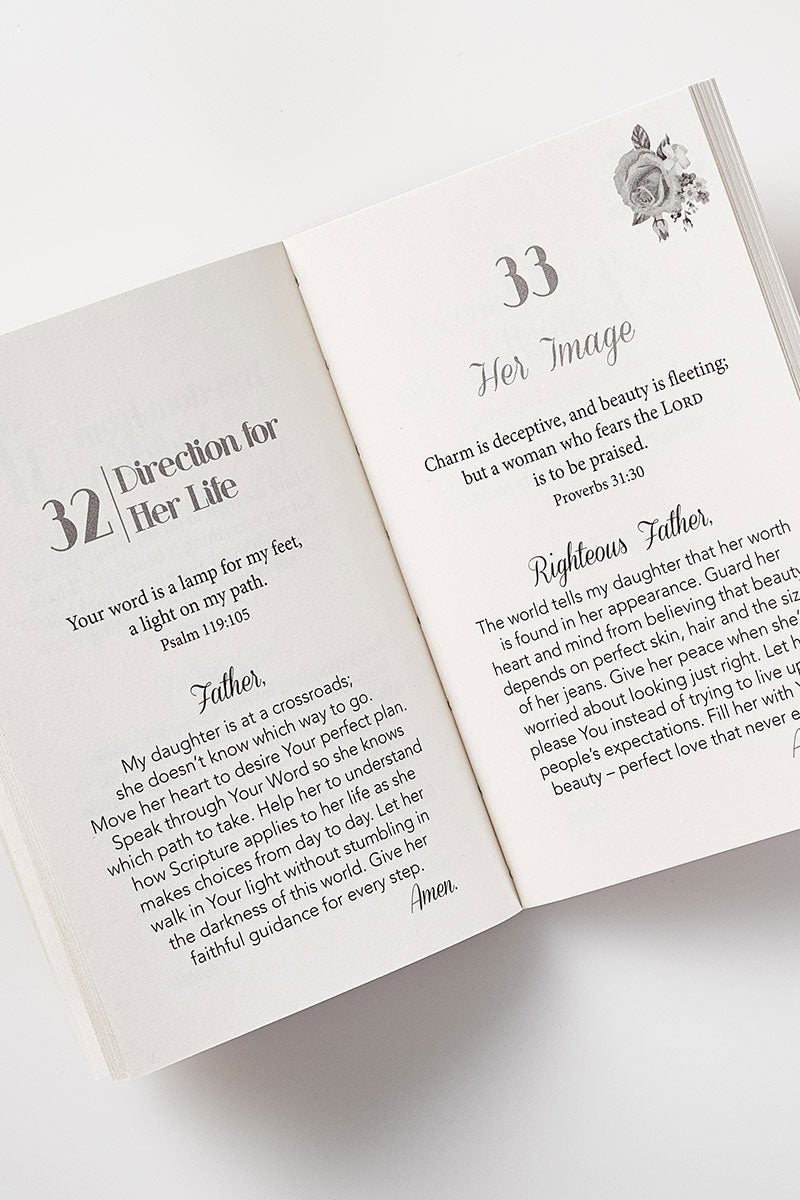 32
Direction for
Her Life
Your word is a lamp for my feet,
a light on my path.
Psalm 119:105
Father,
My daughter is at a crossroads;
she doesn't know which way to go.
Move her heart to desire Your perfect plan.
Speak through Your Word so she knows
which path to take. Help her to understand
how Scripture applies to her life as she
makes choices from day to day. Let her
walk in Your light without stumbling in
the darkness of this world. Give her
faithful guidance for every step.
Amen.
33
Her Image
Charm is deceptive, and beauty is fleeting;
but a woman who fears the LORD
is to be praised.
Proverbs 31:30
Righteous Father,
The world tells my daughter that her worth
is found in her appearance. Guard her
heart and mind from believing that beauty
depends on perfect skin, hair and the
of her jeans. Give her peace when
worried about looking just right. Let
please You instead of trying to live
people's expectations. Fill her with
beauty – perfect love that never